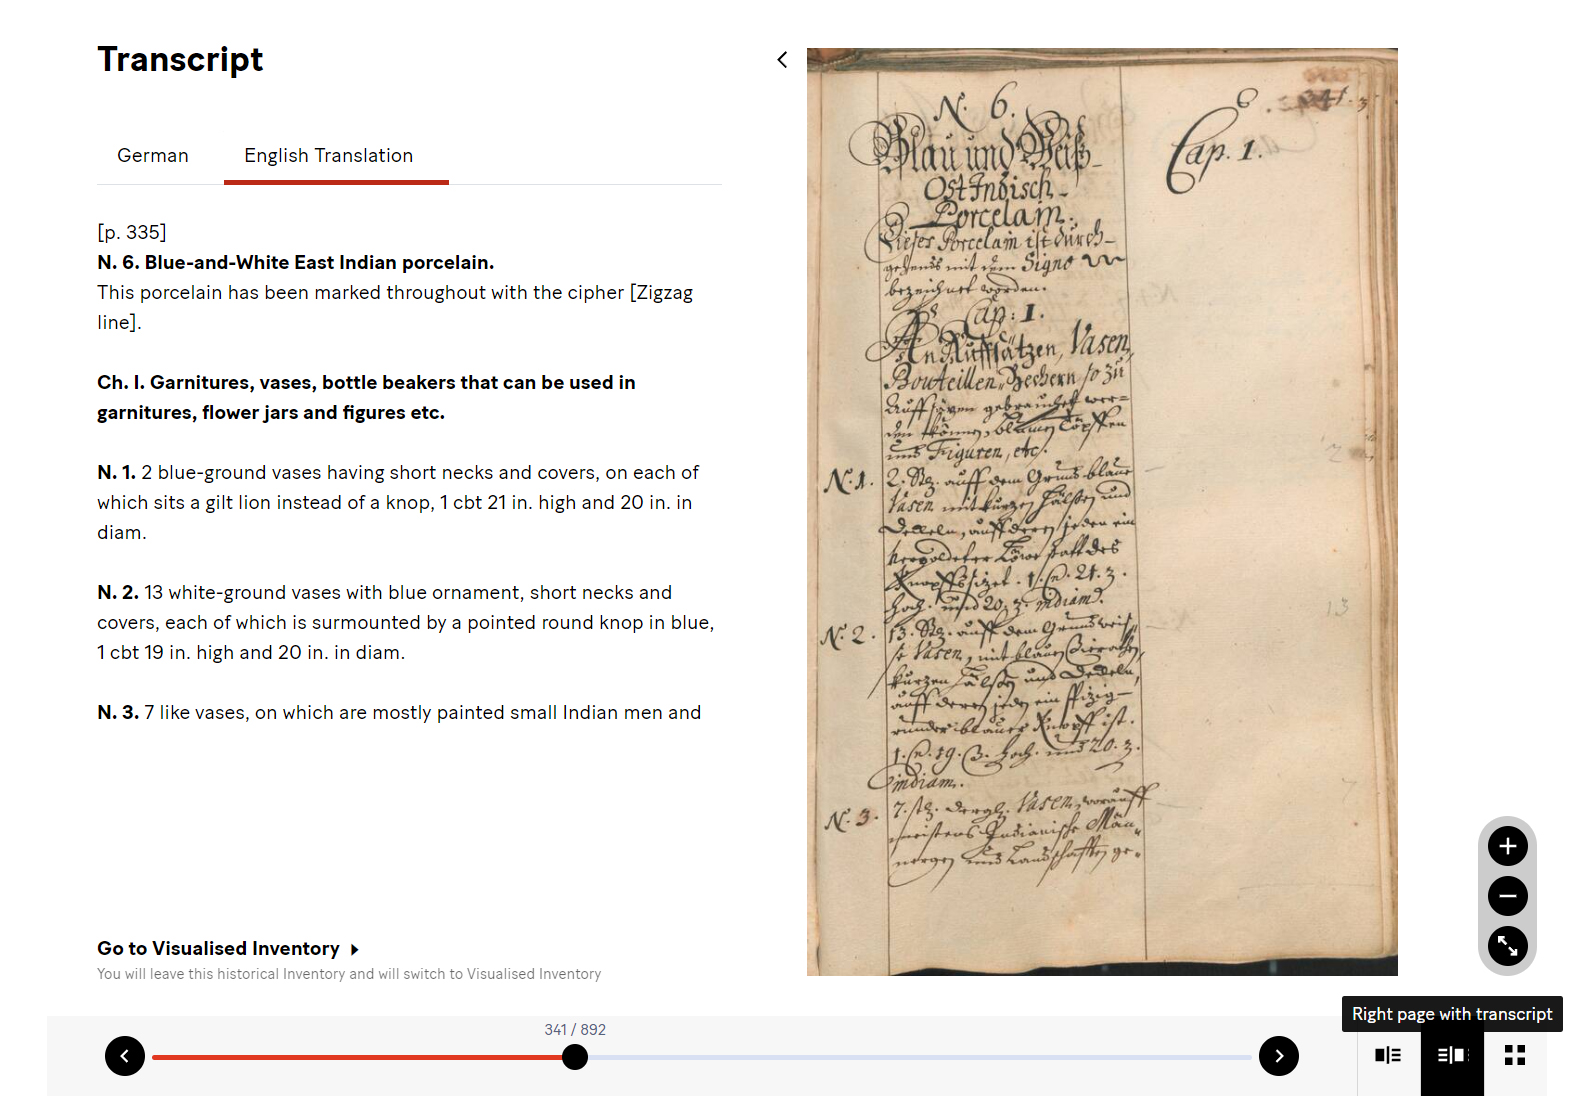 Transcript
German
English Translation
[p. 335]
N. 6. Blue-and-White East Indian porcelain.
This porcelain has been marked throughout with the cipher [Zigzag
line].
Ch. I. Garnitures, vases, bottle beakers that can be used in
garnitures, flower jars and figures etc.
N. 1. 2 blue-ground vases having short necks and covers, on each of
which sits a gilt lion instead of a knop, 1 cbt 21 in. high and 20 in. in
diam.
N. 2. 13 white-ground vases with blue ornament, short necks and
covers, each of which is surmounted by a pointed round knop in blue,
1 cbt 19 in. high and 20 in. in diam.
N. 3. 7 like vases, on which are mostly painted small Indian men and
Go to Visualised Inventory
You will leave this historical Inventory and will switch to Visualised Inventory
N. 6.
Blau und Weiß-
Ost Indisch-
Porcelain.
Dieses Porcelain ist durch-
gehends mit dem Signo
bezeichnet worden.
Cap: 1.
An Auffsätzen, Vasen,
Bouteillen, Bechern so zu
Auffsäzen gebrauchet wer=
den können, blumen Töpffen
und Figuren, etc.
N. 1. 2. Stz. auff dem Grund blaue
Vasen mit kurzen Hälßen und
Deckeln, auff deren jeden ein
vergoldeter Löwe statt des
Knopffs sizet. 1. En. 21. Z.
hoch. und 20. Z. in diam.
N. 2. 13. Stz. auff dem Grund weis-
se Vasen, mit blauen Zierathen,
kurzen Hälßen und Deckeln,
auff deren jeden ein spizig-
runder blauer Knopff ist.
1. En. 19. Z. hoch. und 20. Z.
in diam.
N. 3. 7. stz. dergl. Vasen, worauff
meistens Indianische Män-
nergen und Landschafften ge-
Cap. 1.
341.
2
13
7
341 / 892
Right page with transcript